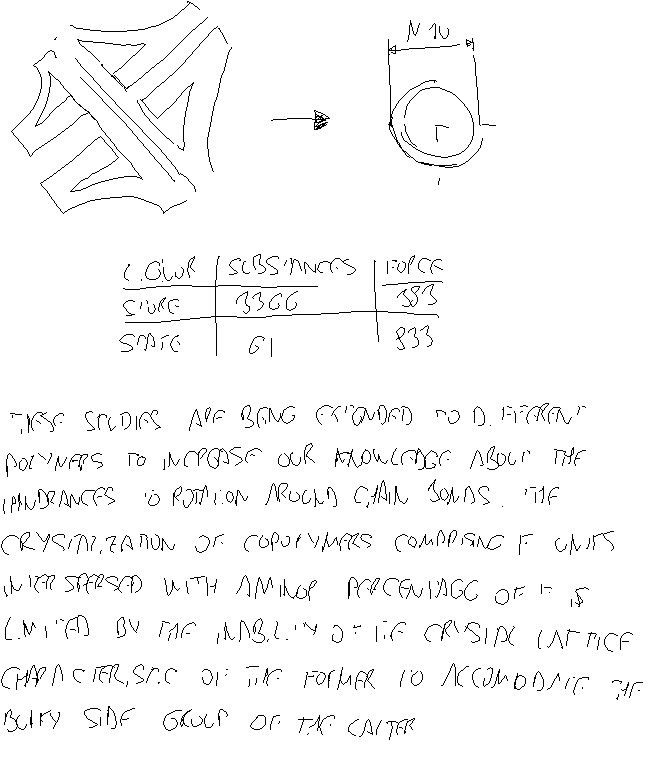 N 10
r
COLOUR SUBSTANCES FORCE
STORE 3366 383
STATE 61 833
THESE STUDIES ARE BEING EXTENDED TO DIFFERENT
POLYMERS TO INCREASE OUR KNOWLEDGE ABOUT THE
HINDRANCES TO ROTATION AROUND CHAIN BONDS. THE
CRYSTALLIZATION OF COPOLYMERS COMPRISING F UNITS
INTERSPERSED WITH A MINOR PERCENTAGE OF IT IS
LIMITED BY THE INABILITY OF THE CRYSTAL LATTICE
CHARACTERISTIC OF THE FORMER TO ACCOMODATE THE
BULKY SIDE GROUP OF THE LATTER